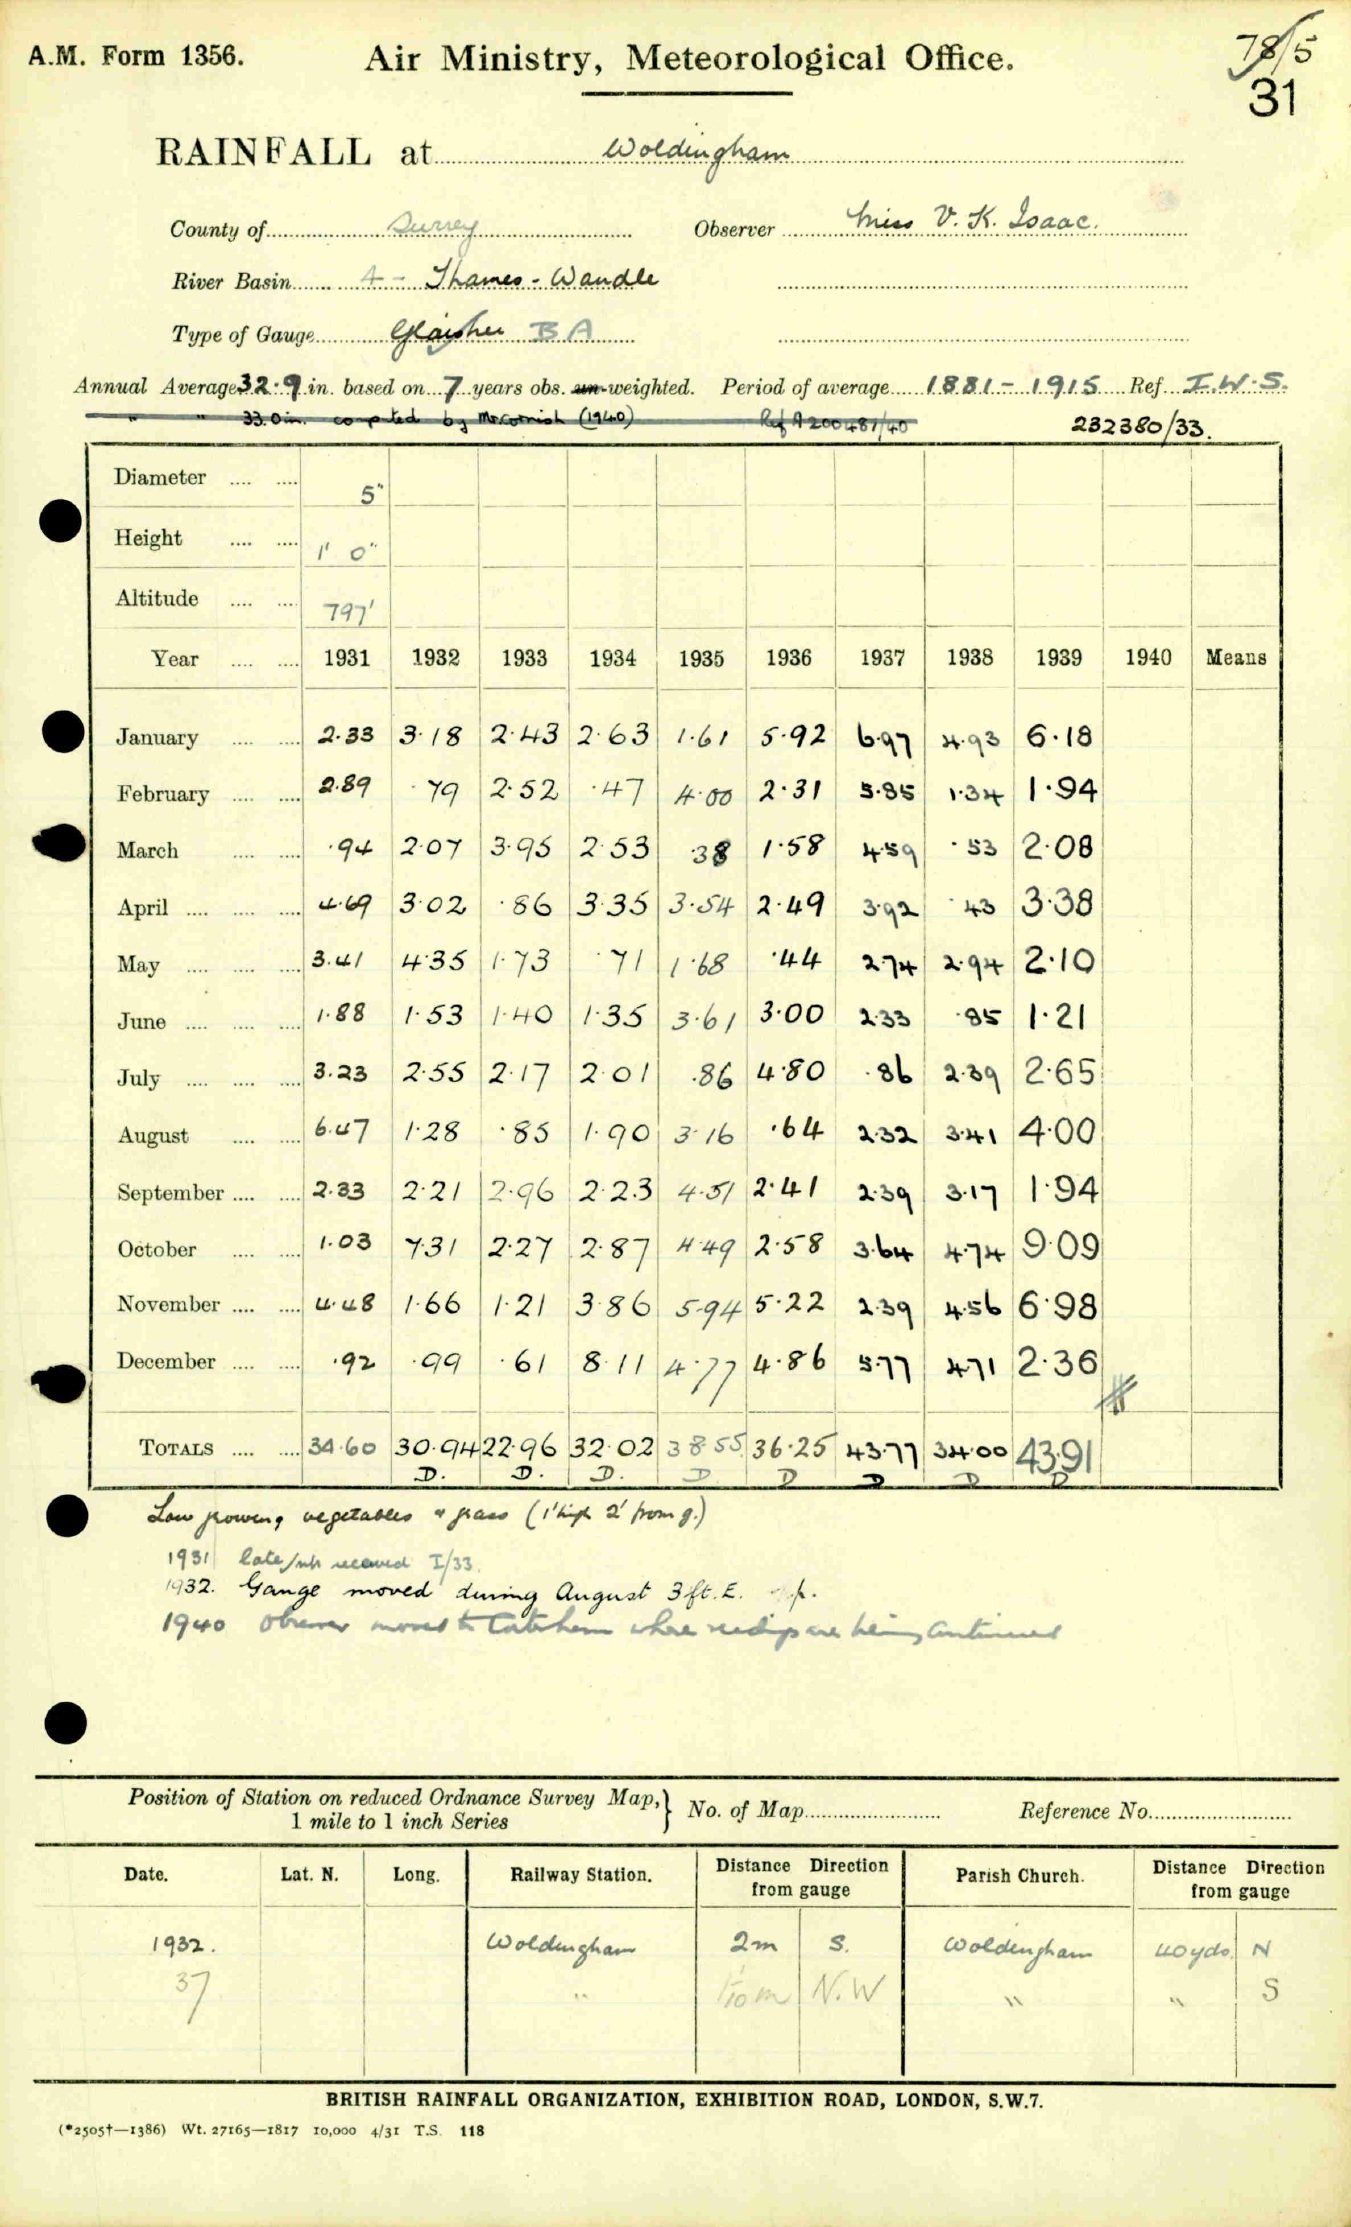 A.M. Form 1356.
Air Ministry, Meteorological Office.
78/5
31
RAINFALL at Woldingham
County of Surrey Observer Miss V. K. Isaac.
River Basin 4 - Thames - Wandle
Type of Gauge Glaisher B A
Annual Average 32.9 in. based on 7 years obs. un-weighted. Period of average 1881 - 1915 Ref. I.W.S.
" " 33.0 in. computed by McCornish (1940) Ref A200481/40 232380/33.
Diameter .... .... 5"
Height .... .... 1' 0"
Altitude .... .... 797'
Year .... .... 1931 1932 1933 1934 1935 1936 1937 1938 1939 1940 Means
January .... .... 2.33 3.18 2.43 2.63 1.61 5.92 6.97 4.93 6.18
February .... .... 2.89 .79 2.52 .47 4.00 2.31 5.85 1.34 1.94
March .... .... .94 2.07 3.95 2.53 .38 1.58 4.59 .53 2.08
April .... .... .... 4.69 3.02 .86 3.35 3.54 2.49 3.92 .43 3.38
May .... .... .... 3.41 4.35 1.73 .71 1.68 .44 2.74 2.94 2.10
June .... .... .... 1.88 1.53 1.40 1.35 3.61 3.00 2.33 .85 1.21
July .... .... .... 3.23 2.55 2.17 2.01 .86 4.80 .86 2.39 2.65
August .... .... 6.47 1.28 .85 1.90 3.16 .64 2.32 3.41 4.00
September .... .... 2.33 2.21 2.96 2.23 4.51 2.41 2.39 3.17 1.94
October .... .... 1.03 7.31 2.27 2.87 4.49 2.58 3.64 4.74 9.09
November .... .... 4.48 1.66 1.21 3.86 5.94 5.22 2.39 4.56 6.98
December .... .... .92 .99 .61 8.11 4.77 4.86 5.77 4.71 2.36
TOTALS .... .... 34.60 30.94 22.96 32.02 38.55 36.25 43.77 34.00 43.91
D. D. D. D D D D D
Low growing vegetables & grass (1' high 2' from g.)
1931 late received I/33.
1932. Gauge moved during August 3 ft. E.
1940 Observer moved to Caterham where readings are being continued
Position of Station on reduced Ordnance Survey Map, 1 mile to 1 inch Series } No. of Map Reference No.
Date. Lat. N. Long. Railway Station. Distance Direction from gauge Parish Church. Distance Direction from gauge
1932. Woldingham 2m S. Woldingham 40 yds. N
37 " 1/10 m N.W " " S
BRITISH RAINFALL ORGANIZATION, EXHIBITION ROAD, LONDON, S.W.7.
(*2505†—1386) Wt. 27165—1817 10,000 4/31 T.S. 118